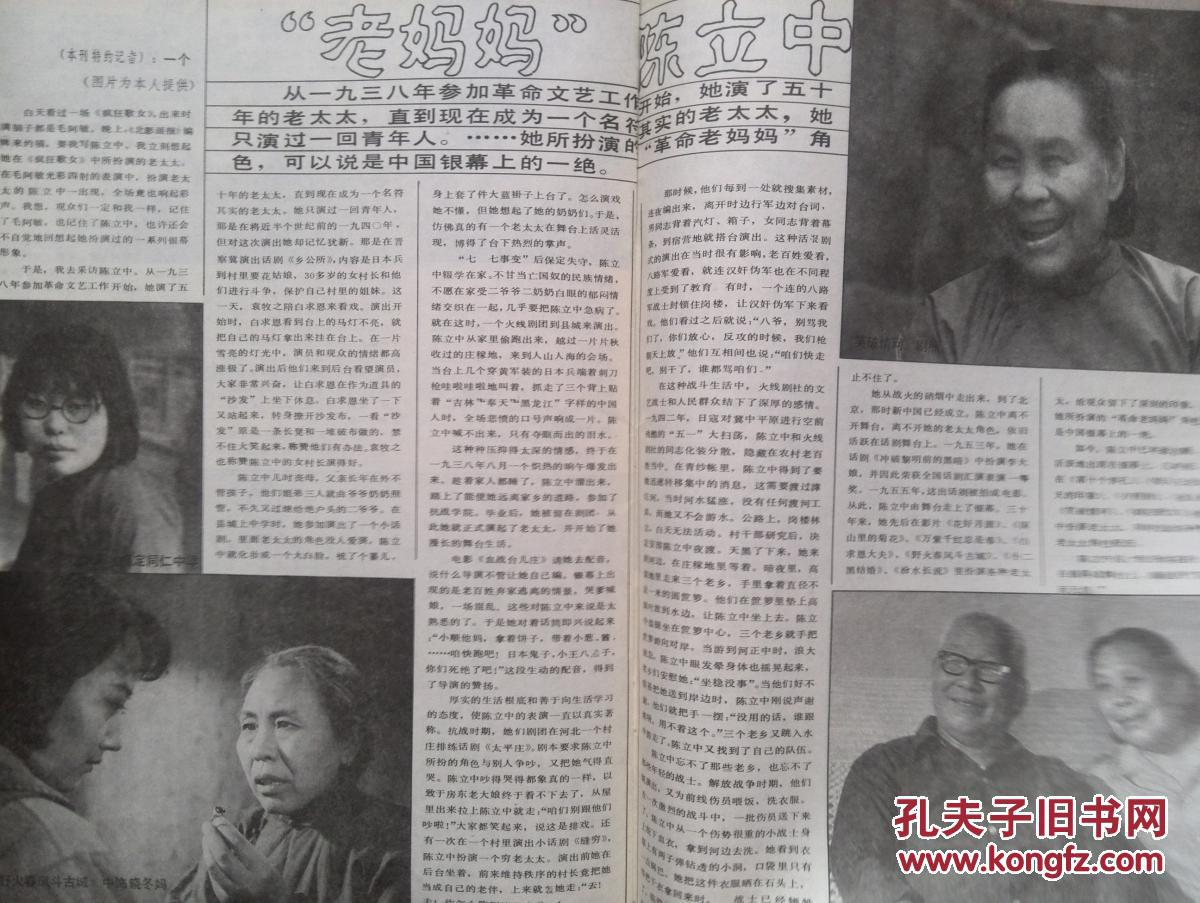 “老妈妈”陈立中
(本刊特约记者)：一个
(图片为本人提供)
从一九三八年参加革命文艺工作开始，她演了五十
年的老太太，直到现在成为一个名符其实的老太太，她
只演过一回青年人。……她所扮演的“革命老妈妈”角
色，可以说是中国银幕上的一绝。
白天看过一场《疯狂歌女》，出来时
满脑子都是毛阿敏，晚上，《北影画报》编
辑来约稿，要我写陈立中，我立刻想起
她在《疯狂歌女》中所扮演的老太太。
在毛阿敏光彩四射的表演中，扮演老太
太的陈立中一出现，全场竟也响起彩
声。我想，观众们一定和我一样，记住
了毛阿敏，也记住了陈立中，也许还会
不自觉地回想起她扮演过的一系列银幕
形象。
于是，我去采访陈立中。从一九三
八年参加革命文艺工作开始，她演了五
十年的老太太，直到现在成为一个名符
其实的老太太，她只演过一回青年人，
那是在将近半个世纪前的一九四〇年，
但对这次演出她却记忆犹新。那是在晋
察冀演出话剧《乡公所》，内容是日本兵
到村里要花姑娘，30多岁的女村长和他
们进行斗争，保护自己村里的姐妹。这
一天，袁牧之陪白求恩来看戏。演出开
始时，白求恩看到台上的马灯不亮，就
把自己的马灯拿出来挂在台上。在一片
雪亮的灯光中，演员和观众的情绪都高
涨极了。演出后他们来到后台看望演员，
大家非常兴奋，让白求恩在作为道具的
“沙发”上坐下休息。白求恩坐了一下
又站起来，转身撩开沙发布，一看“沙
发”原是一条长凳和一堆破布做的，禁
不住大笑起来，称赞他们有办法。袁牧之
也称赞陈立中的女村长演得好。
陈立中儿时丧母，父亲长年在外不
管孩子，他们姐弟三人就由爷爷奶奶照
管，不久又过继给绝户头的二爷爷。在
县城上中学时，她参加演出了一个小话
剧，里面老太太的角色没人爱演，陈立
中就化妆成一个大白脸，梳了个纂儿，
身上套了件大蓝褂子上台了。怎么演戏
她不懂，但她想起了她的奶奶们。于是，
仿佛真的有一个老太太在舞台上活灵活
现，博得了台下热烈的掌声。
“七　七事变”后保定失守，陈立
中辍学在家。不甘当亡国奴的民族情绪，
不愿在家受二爷爷二奶奶白眼的郁闷情
绪交织在一起，几乎要把陈立中急病了。
就在这时，一个火线剧团到县城来演出。
陈立中从家里偷跑出来，越过一片片秋
收过的庄稼地，来到人山人海的会场。
当台上几个穿黄军装的日本兵端着刺刀
枪哇啦哇啦地叫着，抓走了三个背上贴
着“吉林”“奉天”“黑龙江”字样的中国
人时，全场悲愤的口号声响成一片。陈立
中喊不出来，只有夺眶而出的泪水。
这种种压抑得太深的情感，终于在
一九三八年八月一个炽热的晌午爆发出
来。趁着家人都睡了，陈立中溜出来，
踏上了能使她远离家乡的道路，参加了
抗战学院。毕业后，她被留在剧团，从
此她就正式演起了老太太，并开始了她
漫长的舞台生活。
电影《血战台儿庄》请她去配音，
没什么导演不管让她自己编。银幕上出
现的是老百姓弃家逃离的情景，哭爹喊
娘，一场混乱。这些对陈立中来说是太
熟悉的了。于是她对着话筒即兴说起来
：“小顺他妈，拿着饼子，带着小葱、酱，
……咱快跑吧！日本鬼子，小王八羔子，
你们死绝了吧！”这段生动的配音，得到
了导演的赞扬。
厚实的生活根底和善于向生活学习
的态度，使陈立中的表演一直以真实著
称。抗战时期，她们剧团在河北一个村
庄排练话剧《太平庄》。剧本要求陈立中
所扮的角色与别人争吵，又把她气得直
哭。陈立中吵得哭得都象真的一样，以
致于房东老大娘终于看不下去了，从屋
里出来拉上陈立中就走：“咱们别跟他们
吵啦！”大家都笑起来，说这是排戏。还
有一次在一个村里演出小话剧《缝穷》，
陈立中扮演一个穷老太太。演出前她在
后台坐着，前来维持秩序的村长竟把她
当成自己的老伴，上来就轰她走：“去！
那时候，他们每到一处就搜集素材，
连夜编出来，离开时边行军边对台词，
男同志背着汽灯、箱子，女同志背着幕
条，到宿营地就搭台演出。这种活报剧
式的演出在当时很有影响，老百姓爱看，
八路军爱看，就连汉奸伪军也在不同程
度上受到了教育　有时，一个连的八路
军战士封锁住岗楼，让汉奸伪军下来看
戏。他们看过之后就说：“八爷，别骂我
们了，你们放心，反攻的时候，我们枪
朝天上放。”他们互相间也说：“咱们快走
吧，别干了，谁都骂咱们。”
在这种战斗生活中，火线剧社的文
艺战士和人民群众结下了深厚的感情。
一九四二年，日寇对冀中平原进行空前
残酷的“五一”大扫荡，陈立中和火线
剧社的同志化装分散，隐藏在农村老百
姓当中。在青纱帐里，陈立中得到了要
她迅速转移集中的消息，这需要渡过滹
沱河。当时河水猛涨，没有任何渡河工
具，而她又不会游水。公路上，岗楼林
立，白天无法活动。村干部研究后，决
定安排陈立中夜渡。天黑了下来，她来
到河边，在庄稼地里等着。暗夜里，高
粱地里走来三个老乡，手里拿着直径不
足一米的圆笸箩。他们在笸箩里垫上高
让陈立中坐上去。陈立
中盘腿坐在笸箩中心，三个老乡就手把
笸箩游向对岸。当游到河正中时，浪大
陈立中眼发晕身体也摇晃起来，
老乡们安慰她：“坐稳没事”。当他们好不
容易把她送到岸边时，陈立中刚说声谢
谢，他们就把手一摆：“没用的话，谁跟
用不着这个。”三个老乡又跳入水
陈立中又找到了自己的队伍。
陈立中忘不了那些老乡，也忘不了
那些年轻的战士。解放战争时期，他们
演出，又为前线伤员喂饭，洗衣服。
一次激烈的战斗中，一批伤员送下来
陈立中从一个伤势很重的小战士身
上脱下血衣，拿到河边去洗。她看到衣
服上有两子弹钻透的小洞，口袋里只有
她把这件衣服晒在石头上，
止不住了。
她从战火的硝烟中走出来，到了北
京，那时新中国已经成立。陈立中离不
开舞台，离不开她的老太太角色，依旧
活跃在话剧舞台上。一九五三年，她在
话剧《冲破黎明前的黑暗》中扮演李大
娘，并因此荣获全国话剧汇演表演一等
奖。一九五五年，这出话剧被拍成电影，
从此，陈立中由舞台走上了银幕。三十
年来，她先后在影片《花好月圆》、《深
山里的菊花》、《万紫千红总是春》、《白
求恩大夫》、《野火春风斗古城》、《小二
黑结婚》、《汾水长流》里扮演各种老太
太，给观众留下了深刻的印象。
保定同仁中学
野火春风斗古城：中饰晓冬妈
孔夫子旧书网
www.kongfz.com